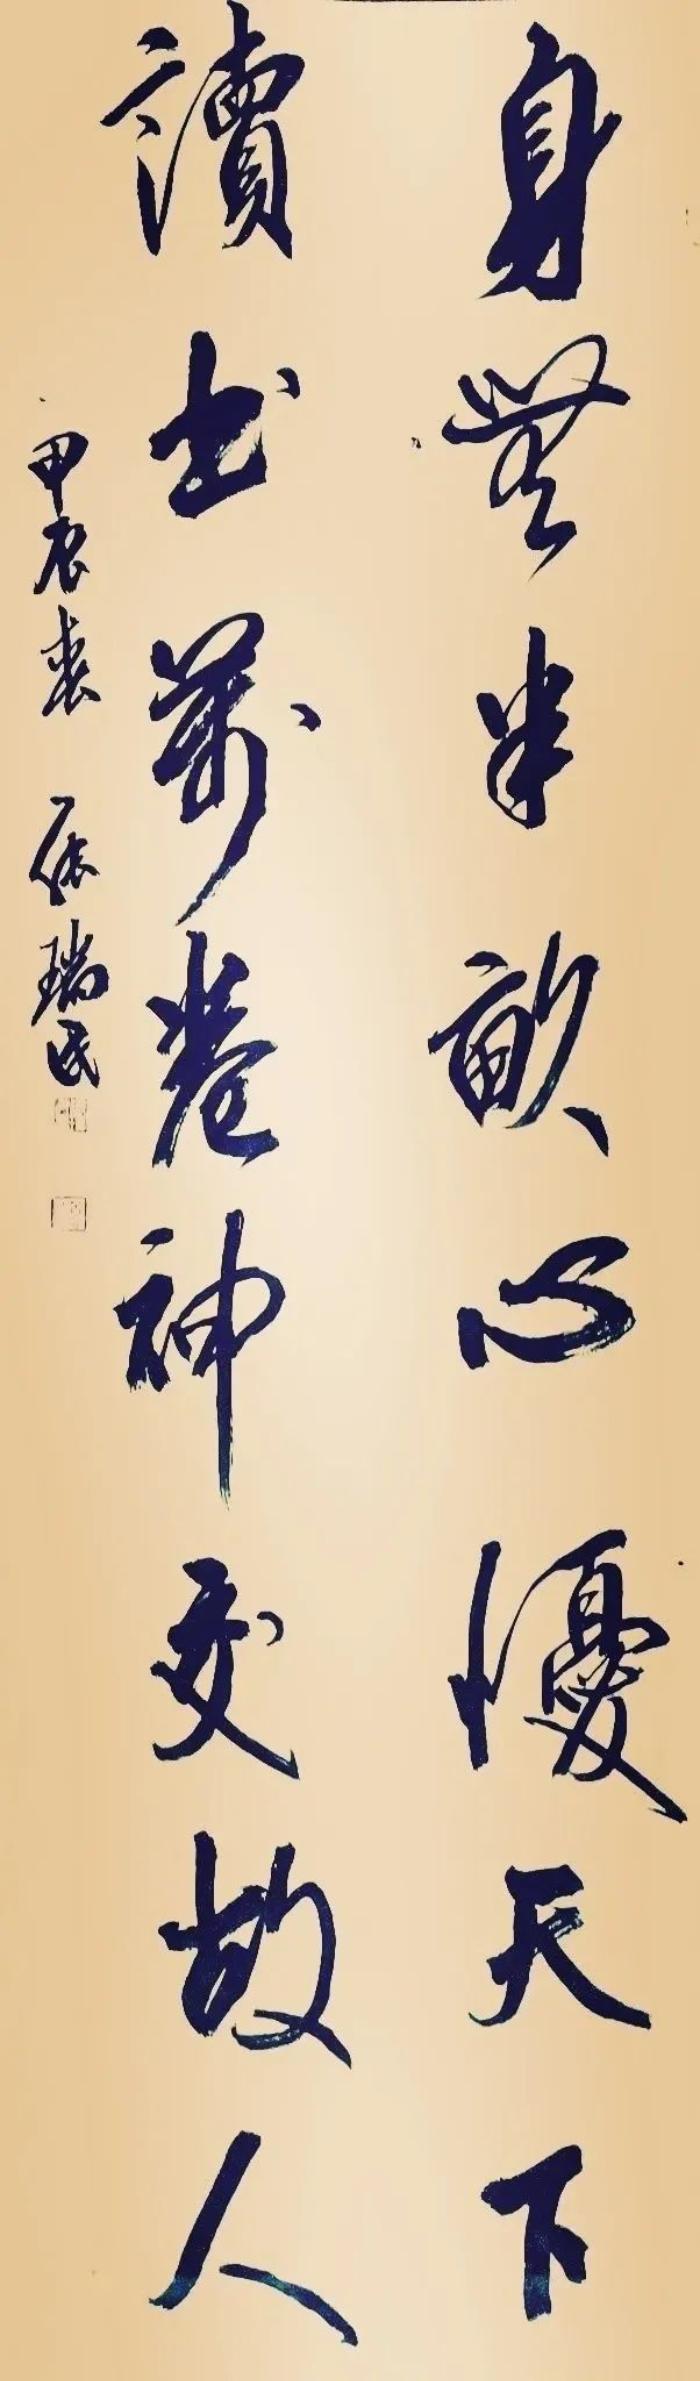 身無半畝心懮天下
讀书萬卷神交故人
甲辰春 张瑞民